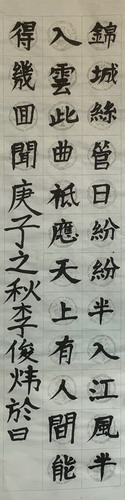 錦城絲管日紛紛半入江風半
入雲此曲祗應天上有人間能
得幾回聞庚子之秋李俊炜於日